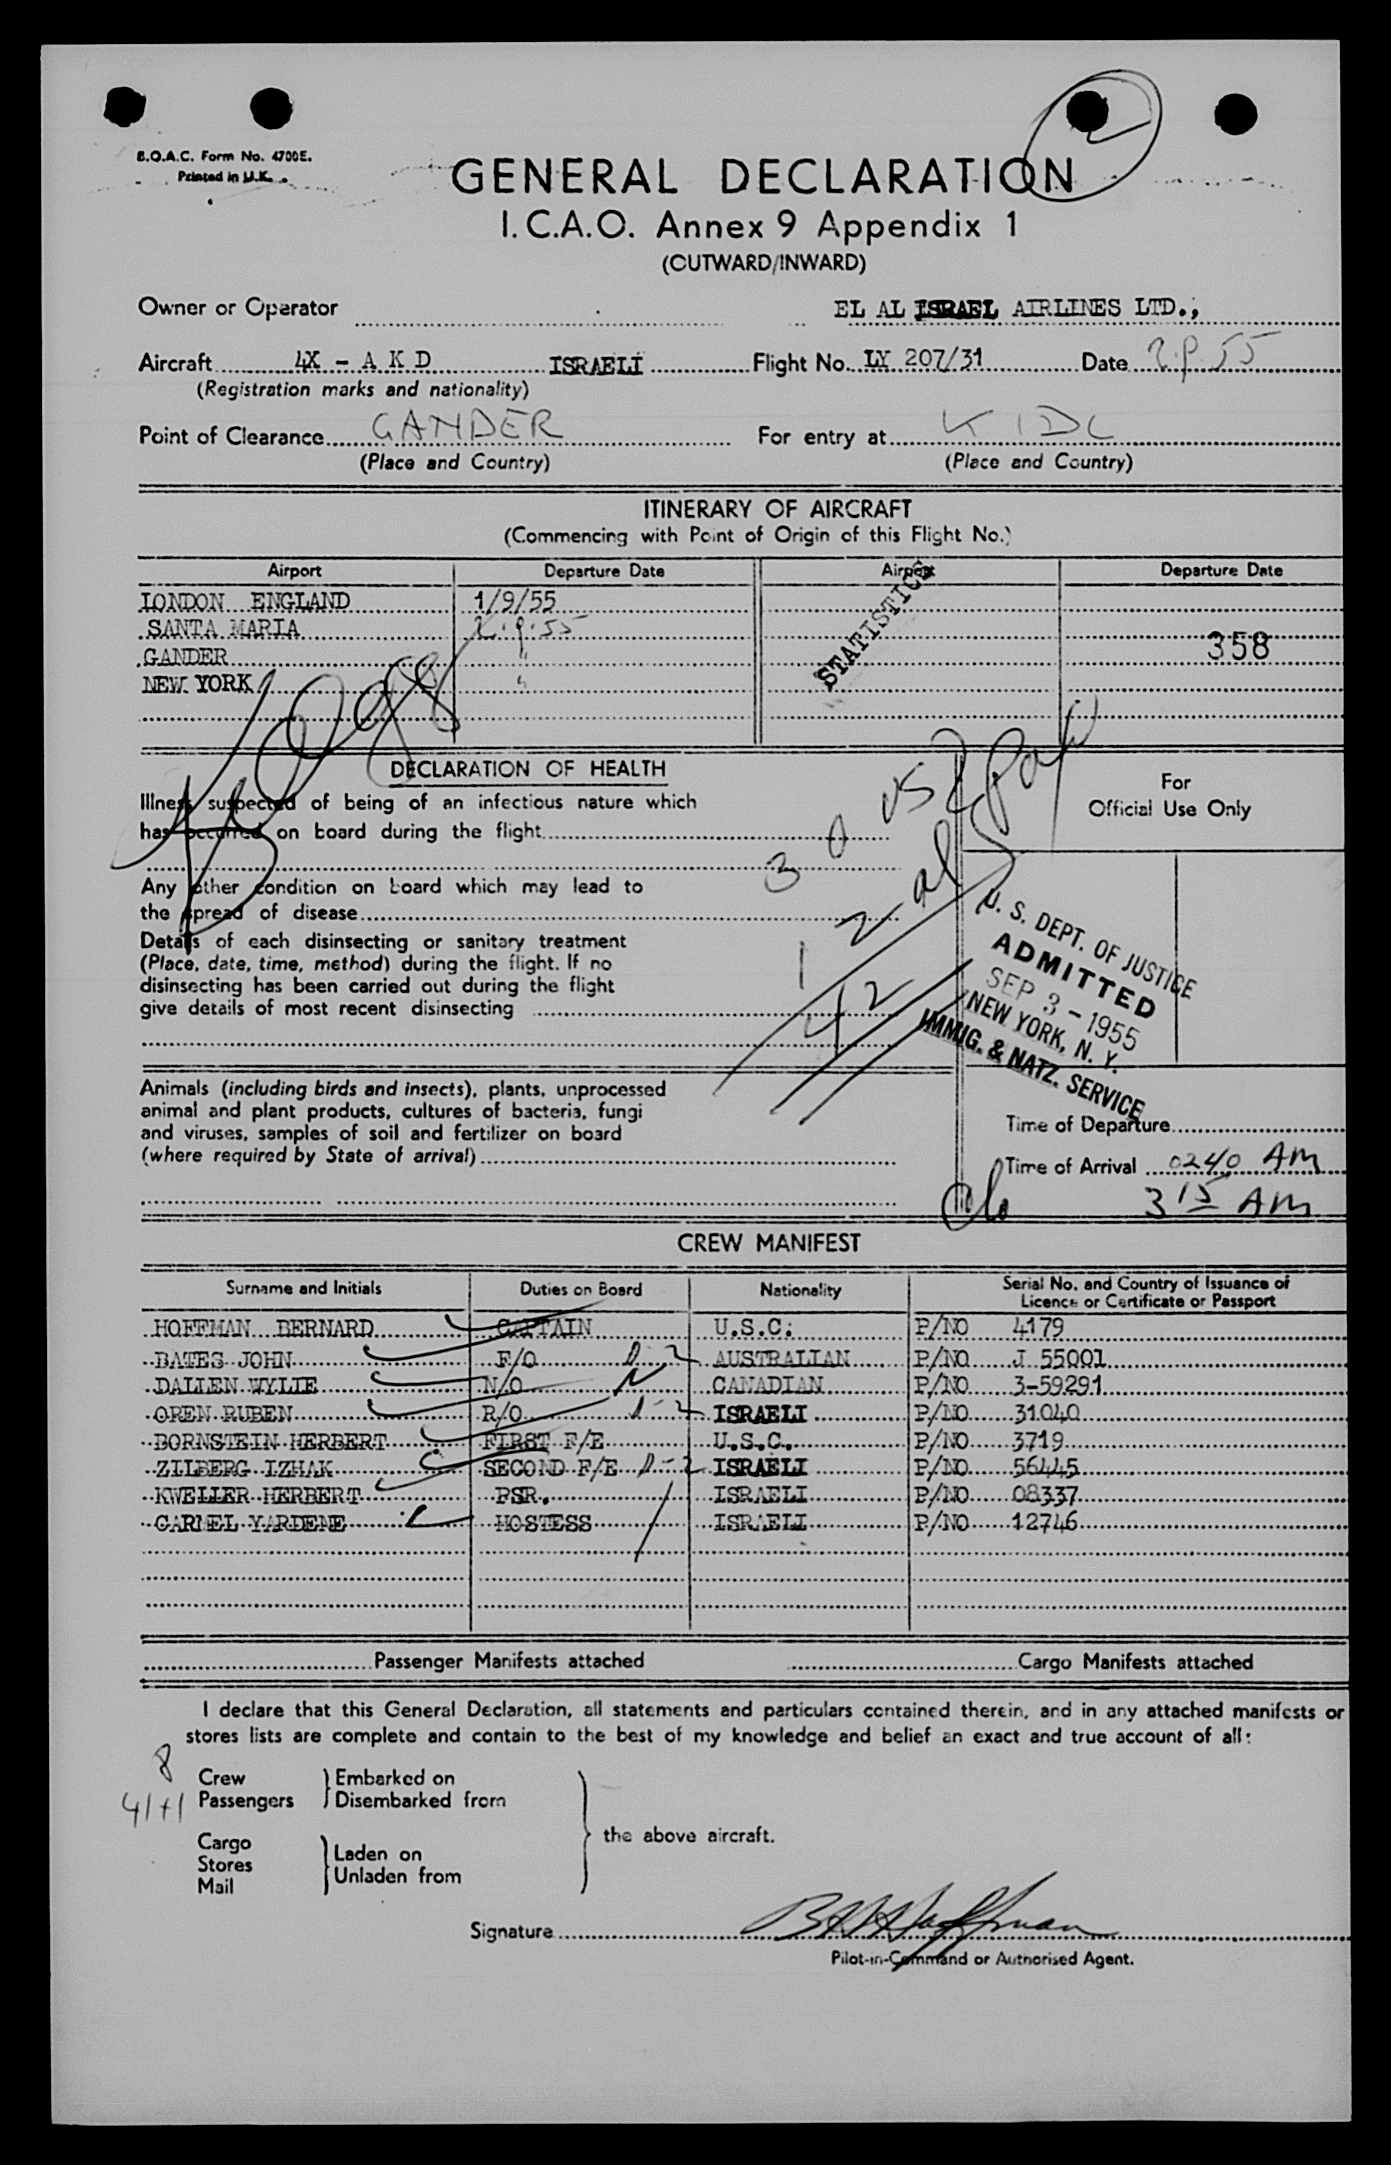 2
B.O.A.C. Form No. 4700E.
Printed in U.K.
GENERAL DECLARATION
I.C.A.O. Annex 9 Appendix 1
(OUTWARD/INWARD)
Owner or Operator EL AL ISRAEL AIRLINES LTD.,
Aircraft 4X - A K D ISRAELI Flight No. LY 207/31 Date 2.9.55
(Registration marks and nationality)
Point of Clearance GANDER For entry at KIDL
(Place and Country) (Place and Country)
ITINERARY OF AIRCRAFT
(Commencing with Point of Origin of this Flight No.)
Airport Departure Date Airport Departure Date
LONDON ENGLAND 1/9/55
SANTA MARIA 2.9.55
GANDER "
NEW YORK "
STATISTICS
358
DECLARATION OF HEALTH
Illness suspected of being of an infectious nature which
has occurred on board during the flight
Any other condition on board which may lead to
the spread of disease
Details of each disinsecting or sanitary treatment
(Place, date, time, method) during the flight. If no
disinsecting has been carried out during the flight
give details of most recent disinsecting
30 USC
12 al
42
For
Official Use Only
U. S. DEPT. OF JUSTICE
ADMITTED
SEP 3 - 1955
NEW YORK, N. Y.
IMMIG. & NATZ. SERVICE
Animals (including birds and insects), plants, unprocessed
animal and plant products, cultures of bacteria, fungi
and viruses, samples of soil and fertilizer on board
(where required by State of arrival)
Time of Departure
Time of Arrival 0240 AM
3 15 AM
CREW MANIFEST
Surname and Initials Duties on Board Nationality Serial No. and Country of Issuance of Licence or Certificate or Passport
HOFFMAN BERNARD CAPTAIN U.S.C. P/NO 4179
BATES JOHN F/O D-2 AUSTRALIAN P/NO J 55001
DALLEN WYLIE N/O CANADIAN P/NO 3-59291
OREN RUBEN R/O D-2 ISRAELI P/NO 31040
BORNSTEIN HERBERT FIRST F/E U.S.C. P/NO 3719
ZILBERG IZHAK SECOND F/E D-2 ISRAELI P/NO 56445
KWELLER HERBERT PSR. ISRAELI P/NO 08337
CARMEL YARDENE HOSTESS ISRAELI P/NO 12746
Passenger Manifests attached Cargo Manifests attached
I declare that this General Declaration, all statements and particulars contained therein, and in any attached manifests or
stores lists are complete and contain to the best of my knowledge and belief an exact and true account of all:
8 Crew Embarked on
41+1 Passengers Disembarked from
the above aircraft.
Cargo
Stores
Mail
Laden on
Unladen from
Signature B H Hoffman
Pilot-in-Command or Authorised Agent.